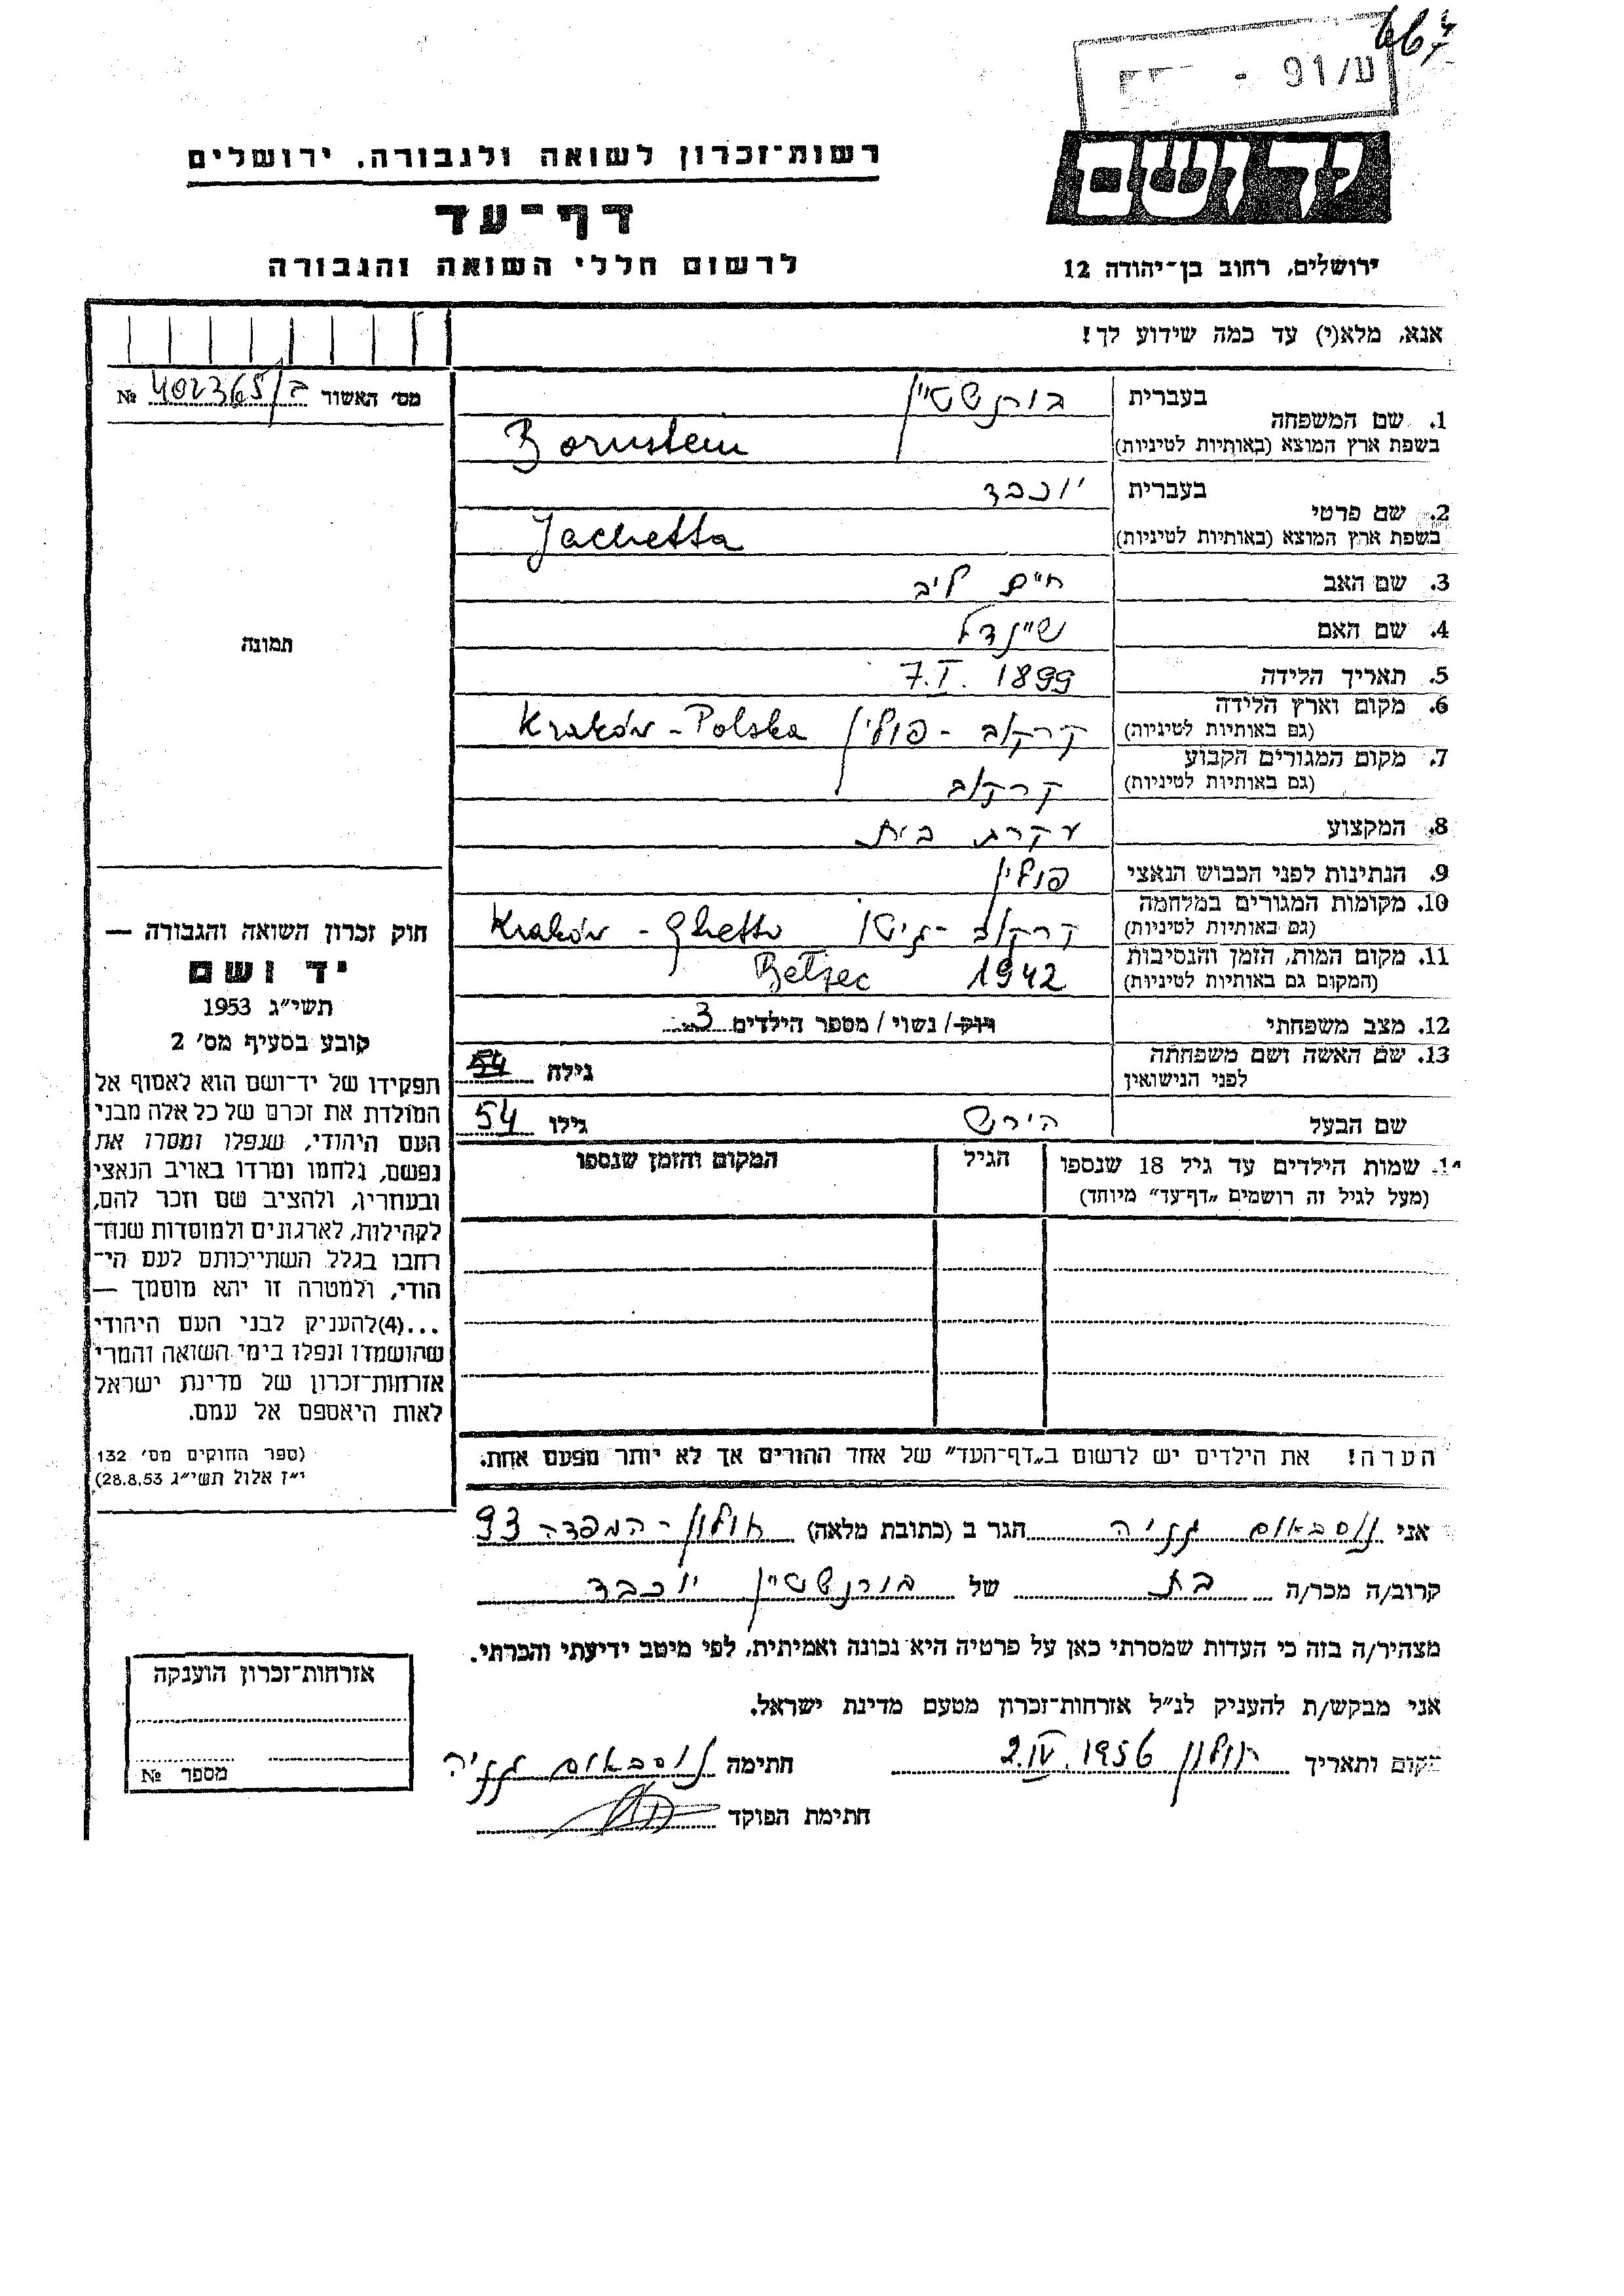 667
ע/91 -
יד ושם
רשות־זכרון לשואה ולגבורה, ירושלים
דף־עד
לרשום חללי השואה והגבורה
ירושלים, רחוב בן־יהודה 12
אנא, מלא(י) עד כמה שידוע לך!
מס׳ האשור ב/402365 №
1. שם המשפחה
בעברית בורנשטיין
בשפת ארץ המוצא (באותיות לטיניות) Bornstein
2. שם פרטי
בעברית יוכבד
בשפת ארץ המוצא (באותיות לטיניות) Jachetta
3. שם האב חיים ליב
4. שם האם שיינדל
5. תאריך הלידה 7.I. 1899
6. מקום וארץ הלידה (גם באותיות לטיניות) קרקוב - פולין Kraków - Polska
7. מקום המגורים הקבוע (גם באותיות לטיניות) קרקוב
8. המקצוע עקרת בית
9. הנתינות לפני הכבוש הנאצי פולין
10. מקומות המגורים במלחמה (גם באותיות לטיניות) קרקוב - גיטו Kraków - Ghetto
11. מקום המות, הזמן והנסיבות (המקום גם באותיות לטיניות) 1942 Bełzec
12. מצב משפחתי רוק/ נשוי/ מספר הילדים 3
13. שם האשה ושם משפחתה לפני הנישואין גילה 54
שם הבעל הירש גילו 54
14. שמות הילדים עד גיל 18 שנספו הגיל המקום והזמן שנספו
(מעל לגיל זה רושמים „דף־עד״ מיוחד)
הערה! את הילדים יש לרשום ב„דף־העד״ של אחד ההורים אך לא יותר מפעם אחת.
תמונה
חוק זכרון השואה והגבורה —
יד ושם
תשי״ג 1953
קובע בסעיף מס׳ 2
תפקידו של יד־ושם הוא לאסוף אל
המולדת את זכרם של כל אלה מבני
העם היהודי, שנפלו ומסרו את
נפשם, נלחמו ומרדו באויב הנאצי
ובעוזריו, ולהציב שם וזכר להם,
לקהילות, לארגונים ולמוסדות שנח־
רבו בגלל השתייכותם לעם הי־
הודי, ולמטרה זו יהא מוסמך —
...(4)להעניק לבני העם היהודי
שהושמדו ונפלו בימי השואה והמרי
אזרחות־זכרון של מדינת ישראל
לאות היאספם אל עמם.
(ספר החוקים מס׳ 132
י״ז אלול תשי״ג 28.8.53)
אני נוסבאום גניה הגר ב (כתובת מלאה) חולון - המפדה 93
קרוב/ה מכר/ה בת של בורנשטיין יוכבד
מצהיר/ה בזה כי העדות שמסרתי כאן על פרטיה היא נכונה ואמיתית, לפי מיטב ידיעתי והכרתי.
אני מבקש/ת להעניק לנ״ל אזרחות־זכרון מטעם מדינת ישראל.
מקום ותאריך חולון 2.IV.1956 חתימה נוסבאום גניה
חתימת הפוקד
אזרחות־זכרון הוענקה
מספר №